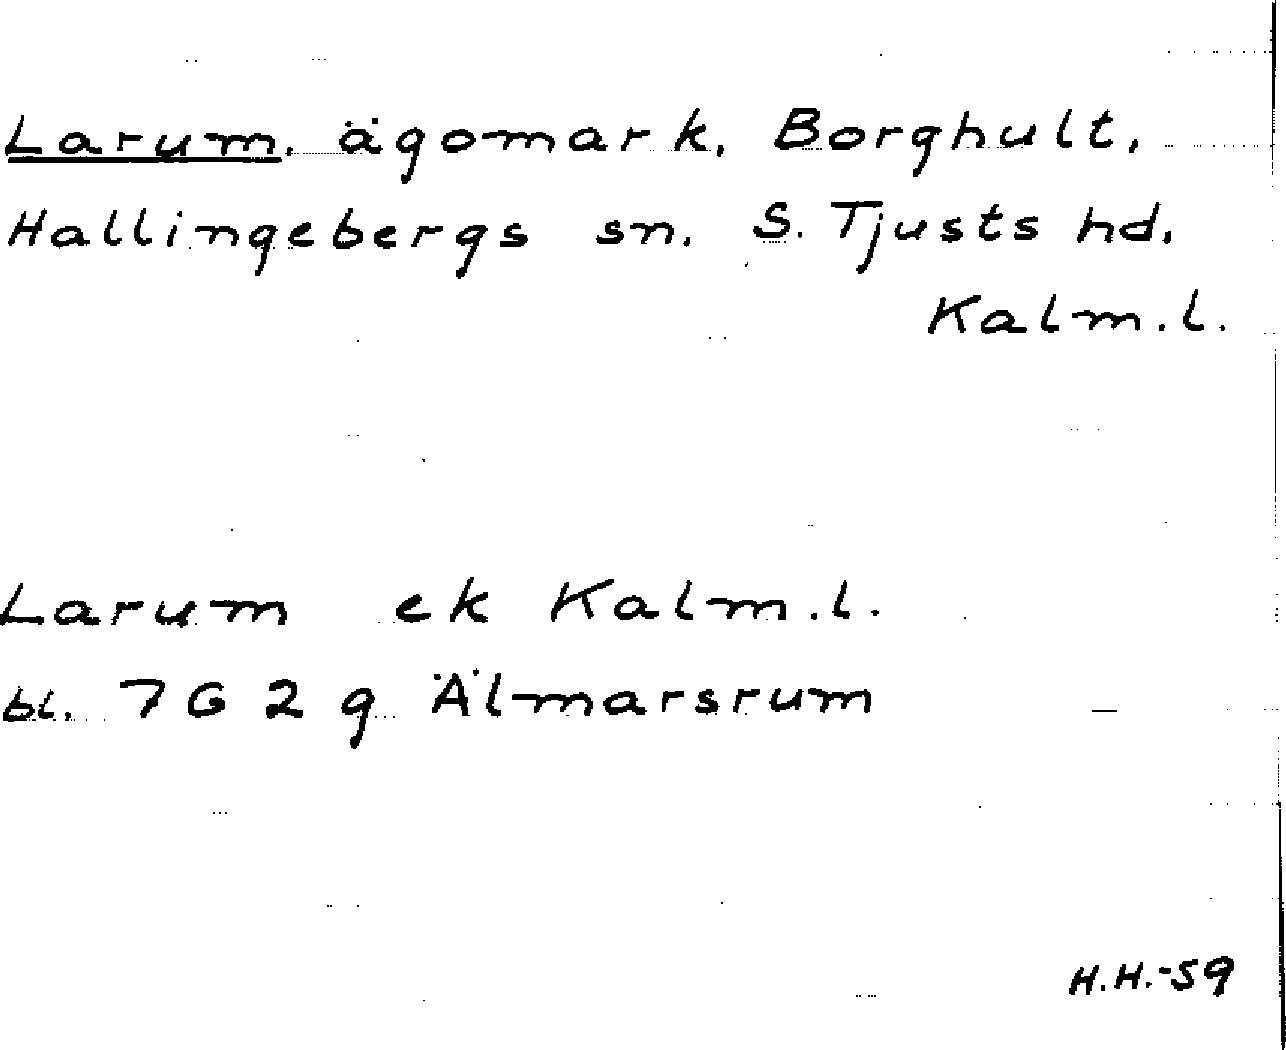 Larum, ägomark, Borghult,
Hallingebergs sn, S. Tjusts hd,
Kalm.l.
Larum ek Kalm.l.
bl. 7G 2g Älmarsrum
H.H.-59